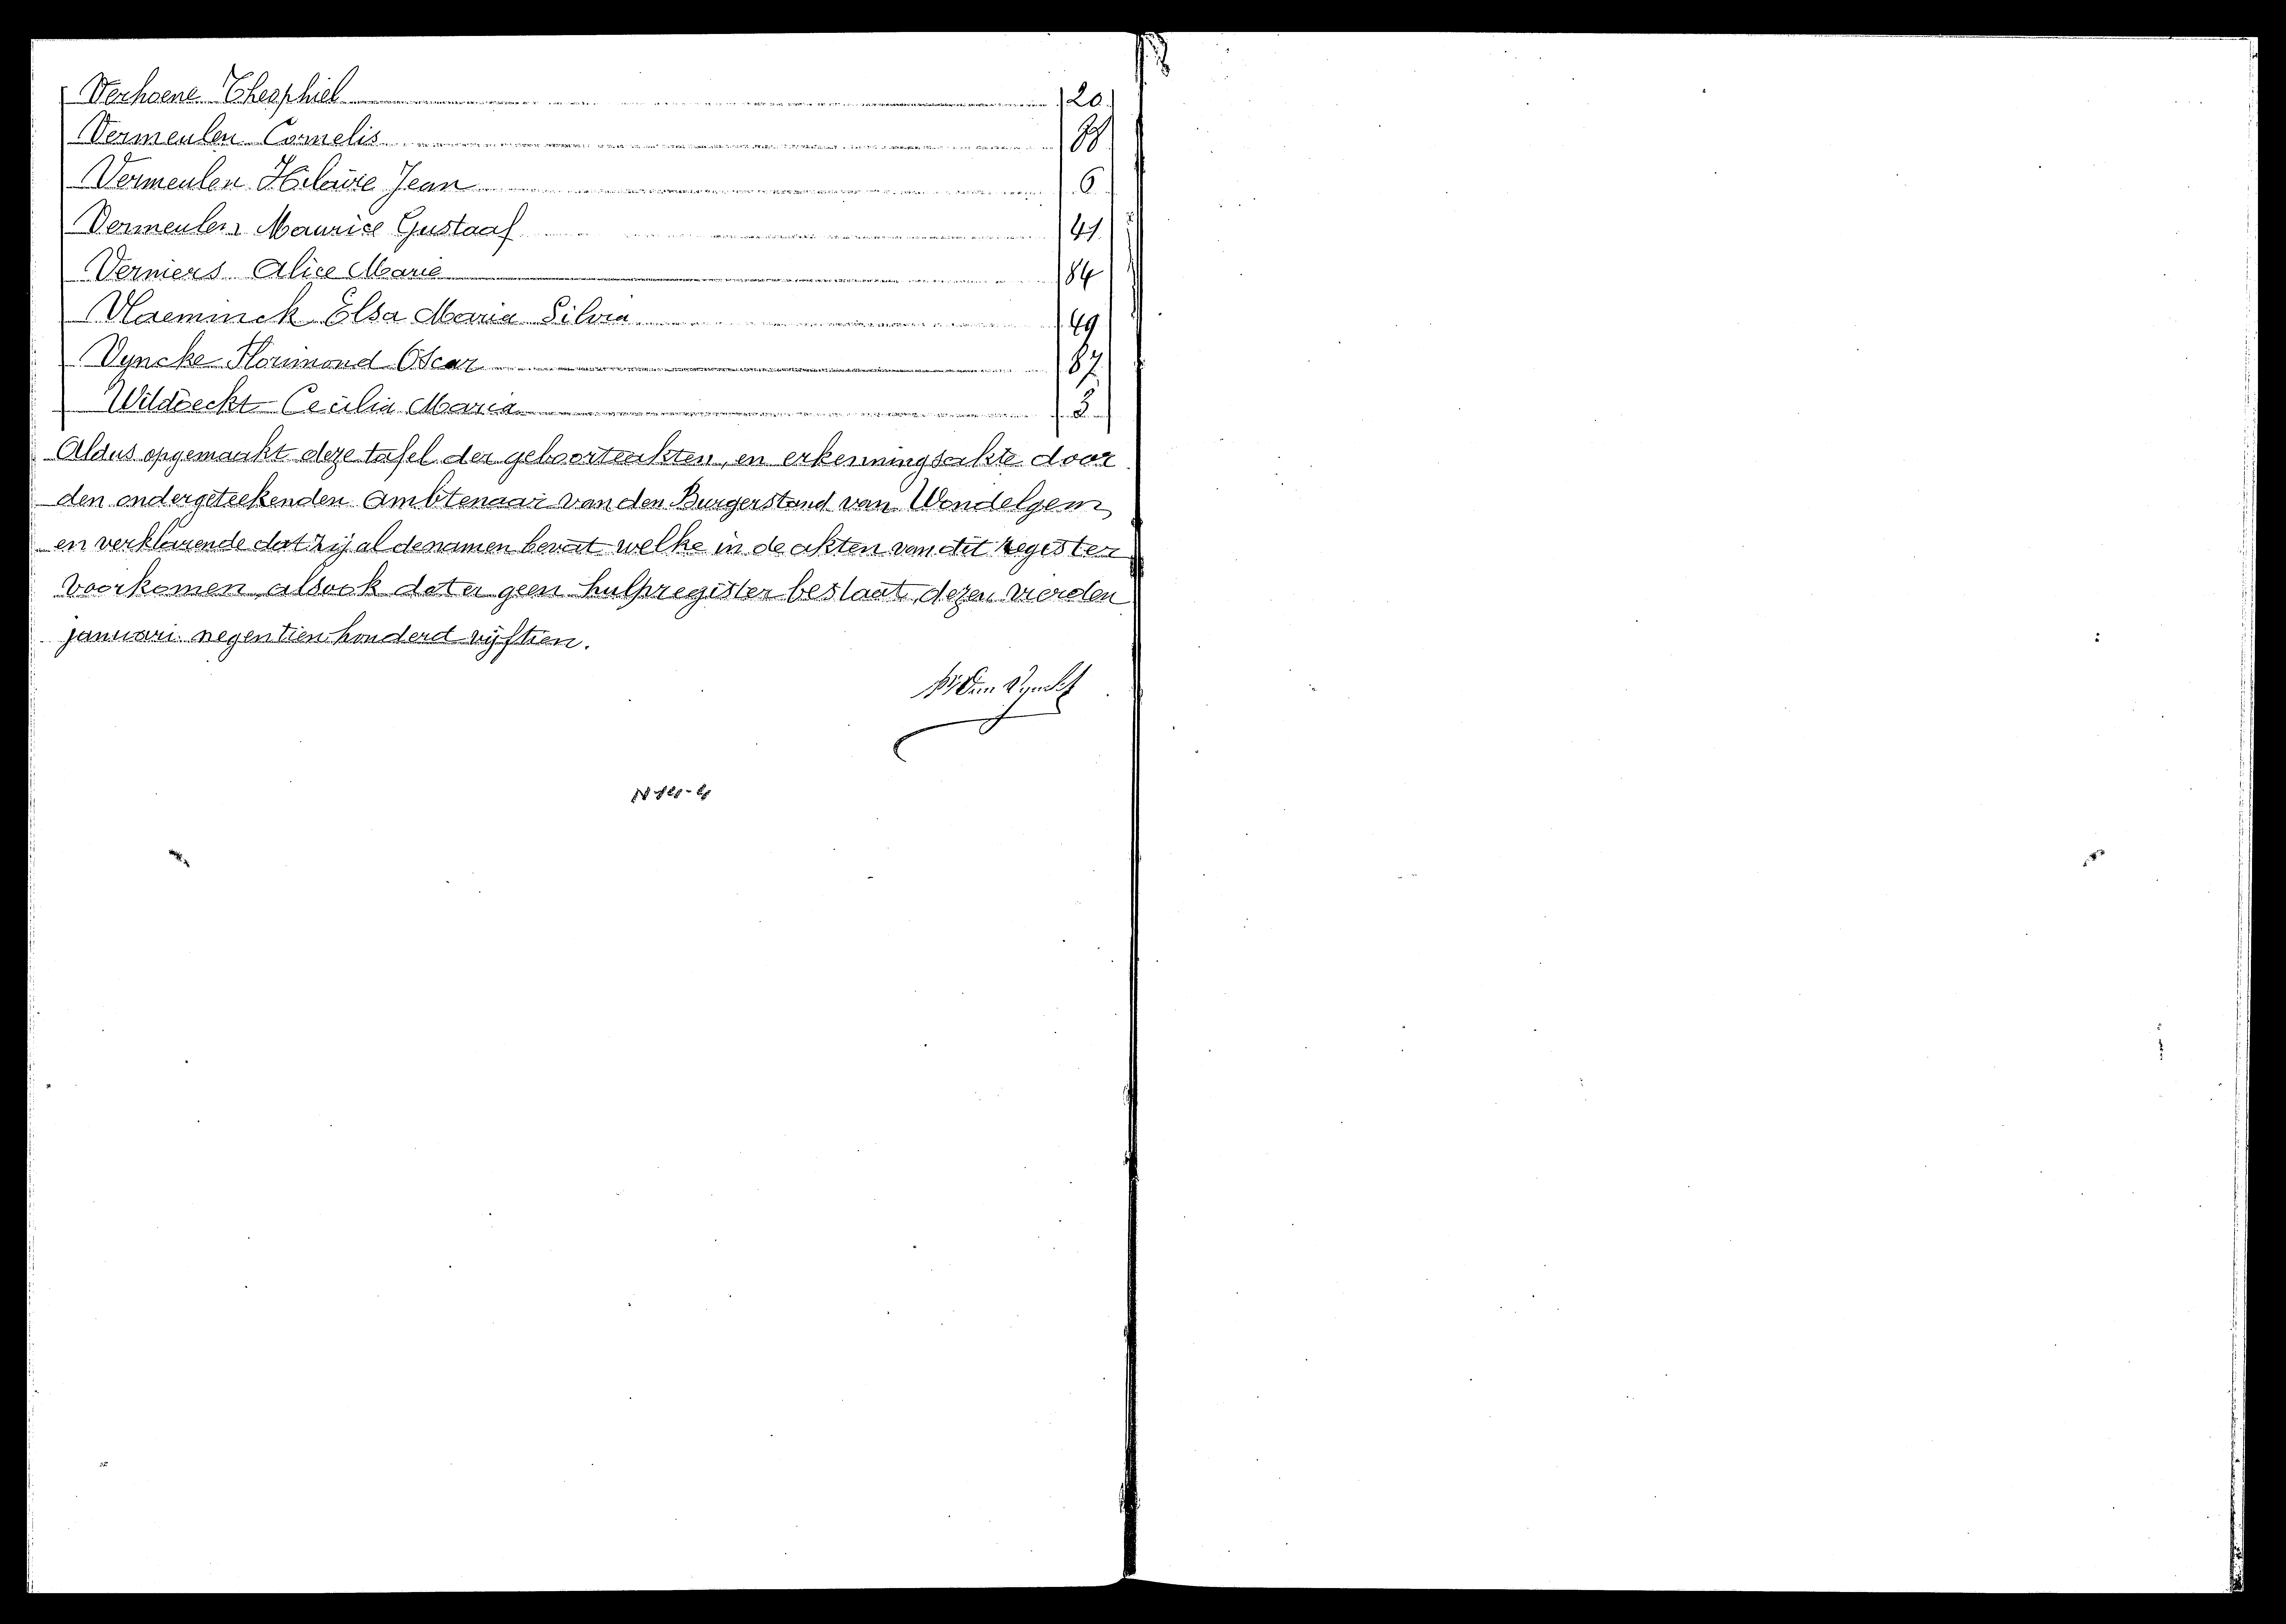 Verhoene Theophiel 20
Vermeulen Cornelis 88
Vermeulen Hilaire Jean 6
Vermeulen Maurice Gustaaf 41
Verniers Alice Marie 84
Vlaeminck Elsa Maria Silvia 49
Vyncke Florimond Oscar 87
Cecilia Maria 3
Aldus opgemaakt deze tafel der geboorteakten, en erkenningsakte door
den ondergeteekenden Ambtenaar van den Burgerstand van Wondelgem,
en verklarende dat zij al de namen bevat welke in de akten van dit register
voorkomen, alsook dat er geen hulpregister bestaat, dezen vierden
januari negentien honderd vijftien.